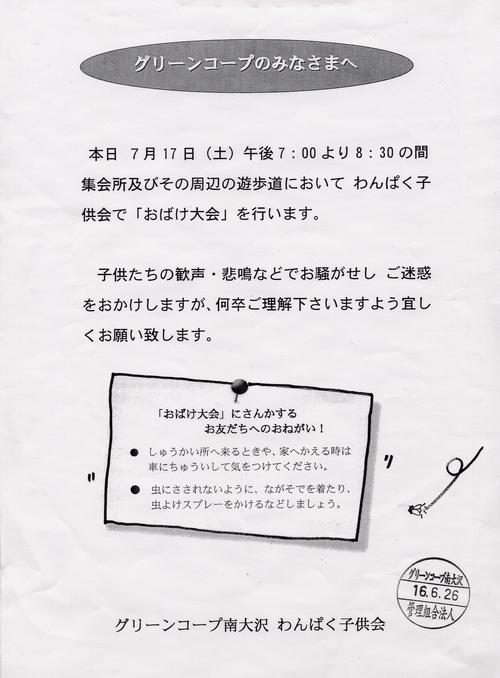 グリーンコープのみなさまへ
本日 7月17日(土)午後7:00より8:30の間
集会所及びその周辺の遊歩道において わんぱく子
供会で「おばけ大会」を行います。
子供たちの歓声・悲鳴などでお騒がせし ご迷惑
をおかけしますが、何卒ご理解下さいますよう宜し
くお願い致します。
「おばけ大会」にさんかする
お友だちへのおねがい!
● しゅうかい所へ来るときや、家へかえる時は
車にちゅういして気をつけてください。
● 虫にさされないように、ながそでを着たり、
虫よけスプレーをかけるなどしましょう。
グリーンコープ南大沢
16.6.26
管理組合法人
グリーンコープ南大沢 わんぱく子供会